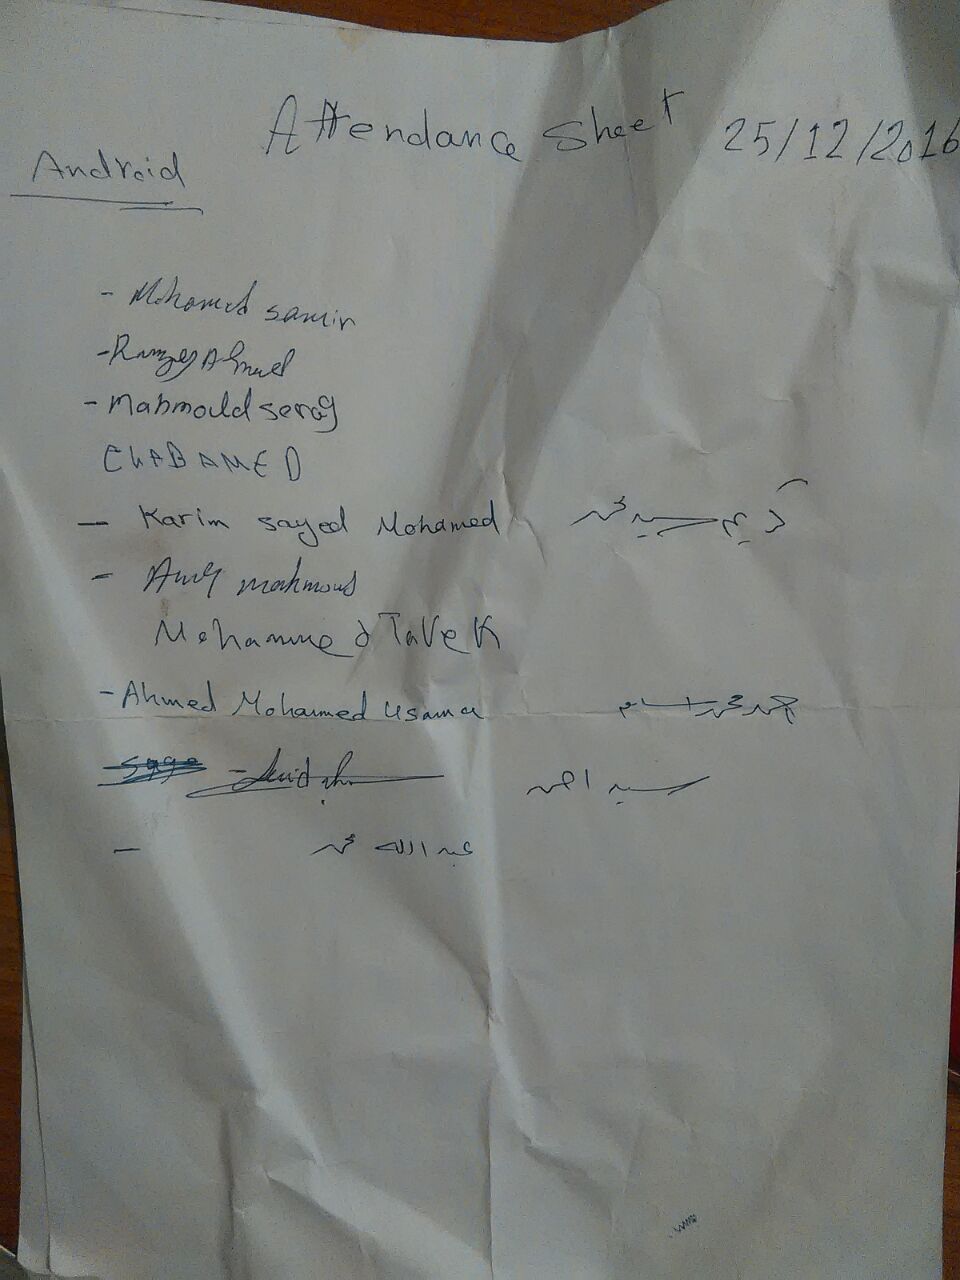 Attendance Sheet 25/12/2016
Android
- Mohamed samir
- Ramzy Ahmed
- Mahmould serag
- Karim sayed Mohamed كريم سيد محمد
- mahmoud
Mohammed Tarek
- Ahmed Mohamed Usama احمد محمد اسامه
- سيد احمد
- عبد الله محمد